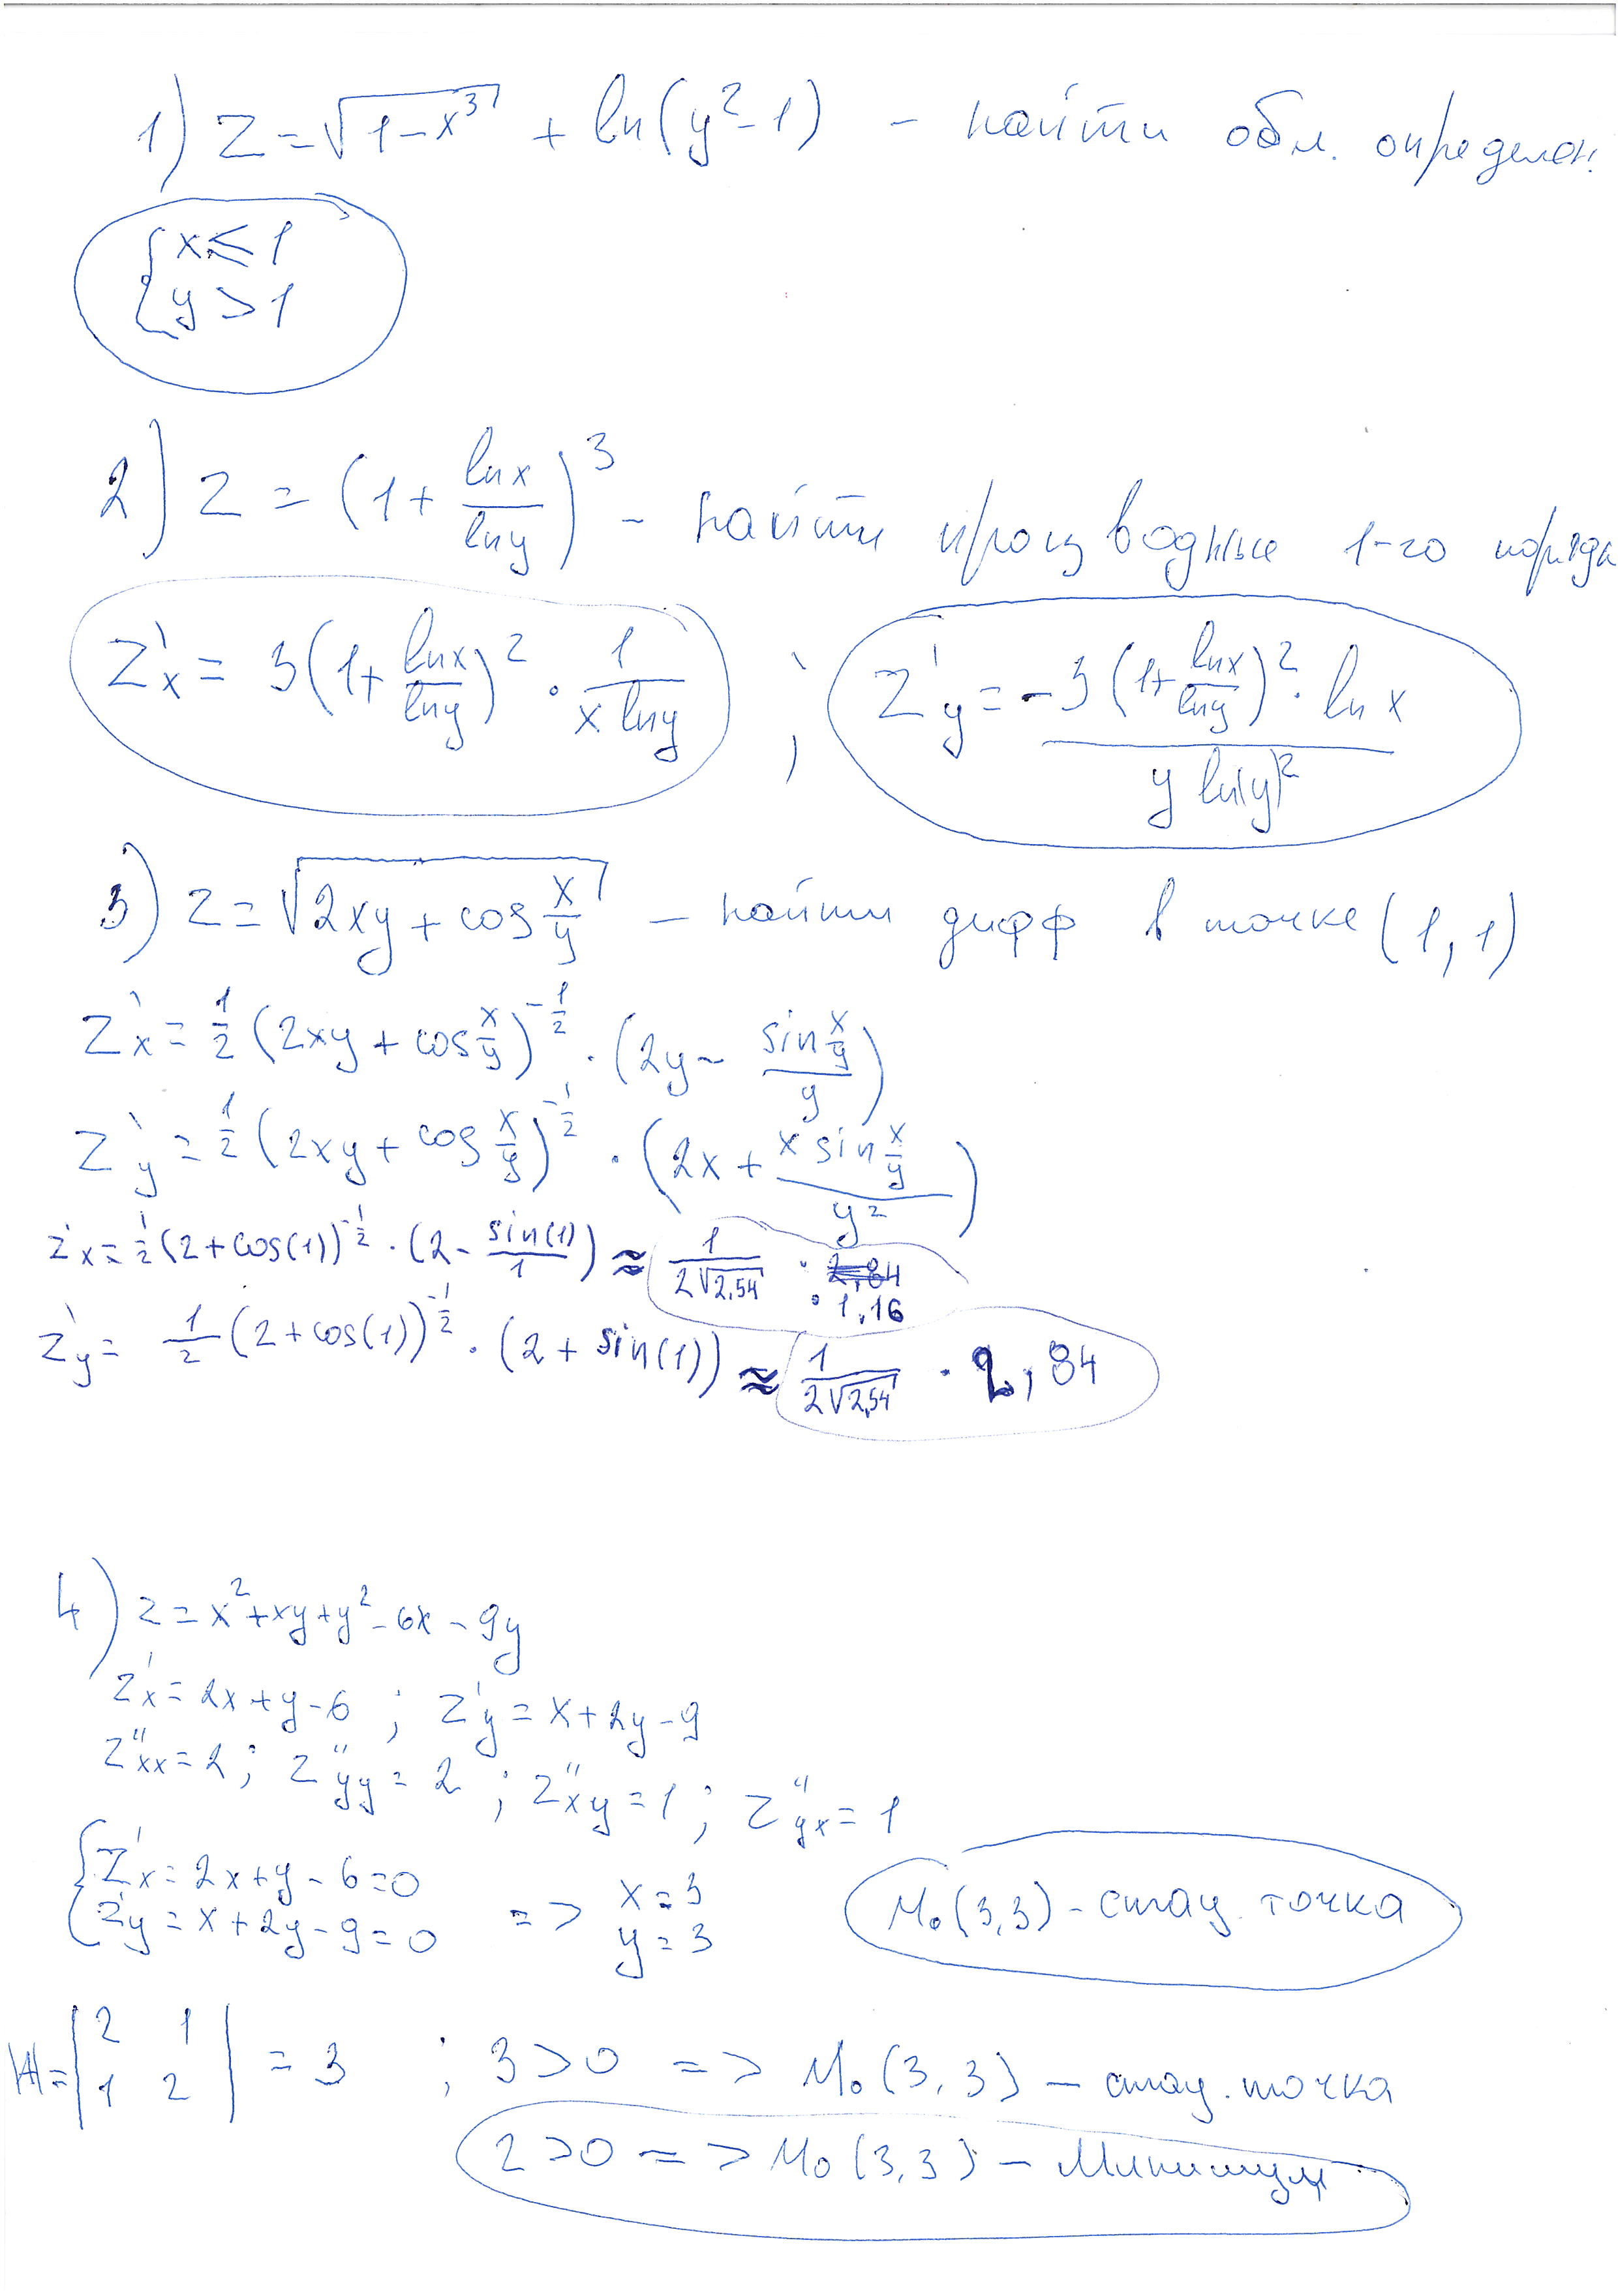 1) z = √(1-x³) + ln(y²-1) - найти обл. определен.
{ x ≤ 1
{ y > 1
2) z = (1 + lnx/lny)³ - найти производные 1-го порядк
z'x = 3(1 + lnx/lny)² · 1/(x lny) ; z'y = -3(1 + lnx/lny)² · ln x / (y ln(y)²)
3) z = √(2xy + cos x/y) - найти дифф в точке (1, 1)
z'x = 1/2 (2xy + cos x/y)^(-1/2) · (2y - (sin x/y)/y)
z'y = 1/2 (2xy + cos x/y)^(-1/2) · (2x + (x sin x/y)/y²)
z'x = 1/2 (2 + cos(1))^(-1/2) · (2 - sin(1)/1) ≈ 1/(2√2.54) · 2,84
· 1,16
z'y = 1/2 (2 + cos(1))^(-1/2) · (2 + sin(1)) ≈ 1/(2√2,54) · 2,84
4) z = x² + xy + y² - 6x - 9y
z'x = 2x + y - 6 ; z'y = x + 2y - 9
z"xx = 2 ; z"yy = 2 ; z"xy = 1 ; z"yx = 1
{ z'x = 2x + y - 6 = 0
{ z'y = x + 2y - 9 = 0 => x = 3
y = 3
M₀(3,3) - стац. точка
|H| = | 2 1 |
| 1 2 | = 3 ; 3 > 0 => M₀(3,3) - стац. точка
2 > 0 => M₀(3,3) - минимум